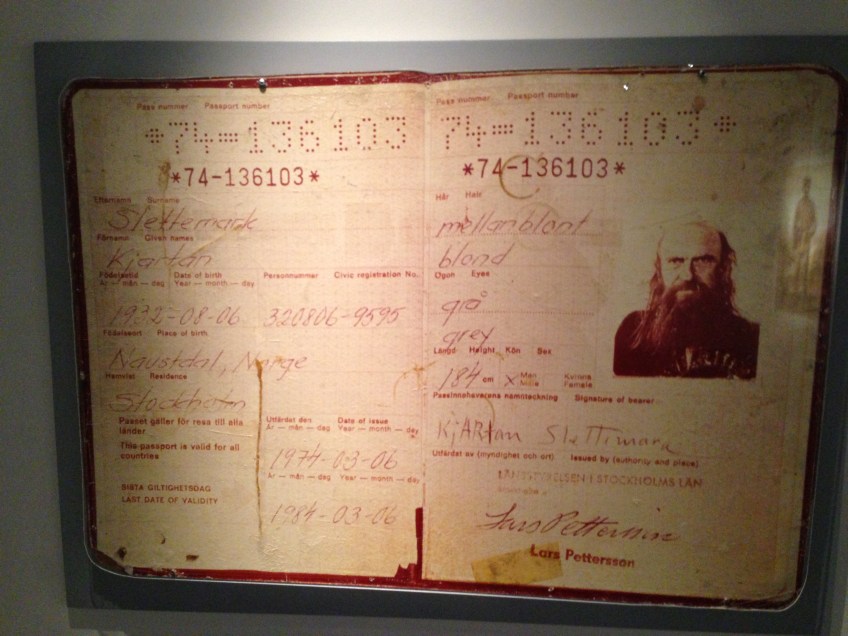 Pass nummer Passport number
*74-136103
*74-136103*
Efternamn Surname
Slettemark
Förnamn Given names
Kjartan
Födelsetid Date of birth Personnummer Civic registration No.
År — mån — dag Year — month — day
1932-08-06 320806-9595
Födelseort Place of birth
Naustdal, Norge
Hemvist Residence
Stockholm
Passet gäller för resa till alla länder
This passport is valid for all countries
Utfärdat den Date of issue
År — mån — dag Year — month — day
1974-03-06
SISTA GILTIGHETSDAG
LAST DATE OF VALIDITY
År — mån — dag Year — month — day
1984-03-06
Pass nummer Passport number
74-136103*
*74-136103*
Hår Hair
mellanblont
blond
Ögon Eyes
grå
grey
Längd Height Kön Sex
184 cm x Man Male Kvinna Female
Passinnehavarens namnteckning Signature of bearer
KjARtan Slettemark
Utfärdat av (myndighet och ort) Issued by (authority and place)
LÄNSSTYRELSEN I STOCKHOLMS LÄN
Lars Pettersson
Lars Pettersson